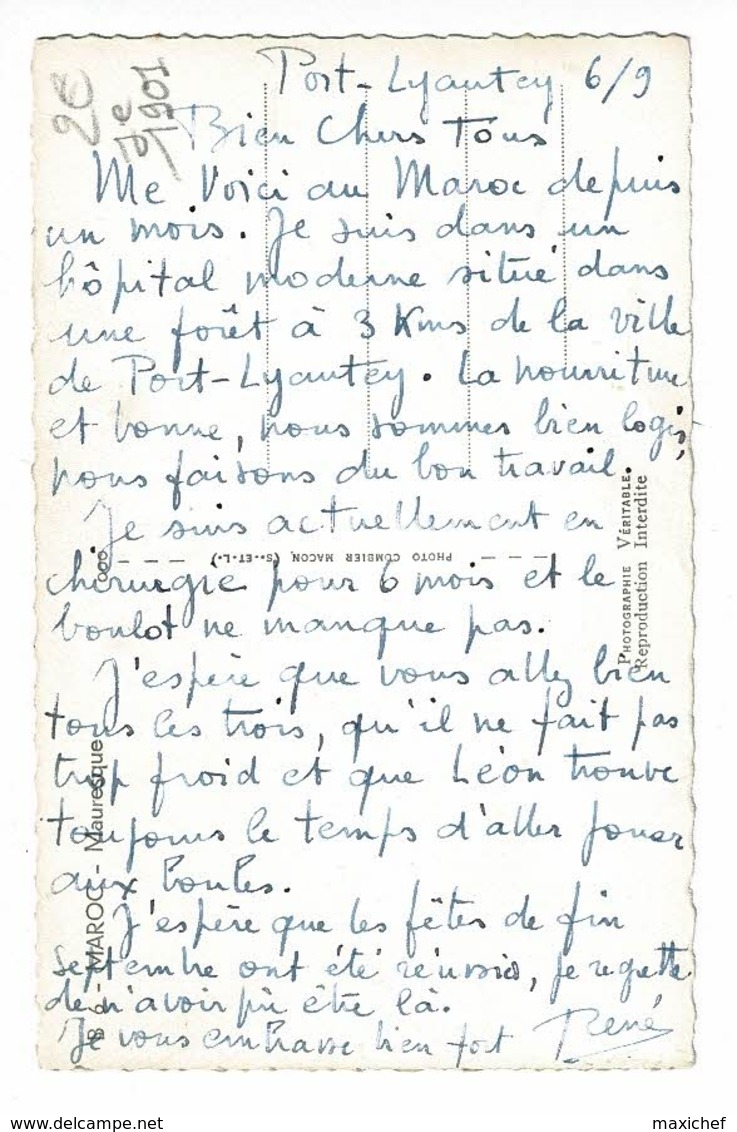 Port-Lyautey 6/9
Bien Chers Tous
Me Voici au Maroc depuis
un mois. Je suis dans un
hôpital moderne situé dans
une forêt à 3 Kms de la ville
de Port-Lyautey. La nourriture
et bonne, nous sommes bien logis,
nous faisons du bon travail.
Je suis actuellement en
chirurgie pour 6 mois et le
boulot ne manque pas.
J'espère que vous allez bien
tous les trois, qu'il ne fait pas
trop froid et que Léon trouve
toujours le temps d'aller jouer
aux boules.
J'espère que les fêtes de fin
Septembre ont été réussies, je regrette
de n'avoir pû être là.
Je vous embrasse bien fort René
2€
1901
PHOTO COMBIER MACON (S.-ET-L.)
PHOTOGRAPHIE VÉRITABLE.
Reproduction Interdite
MAROC - Mauresque
maxichef